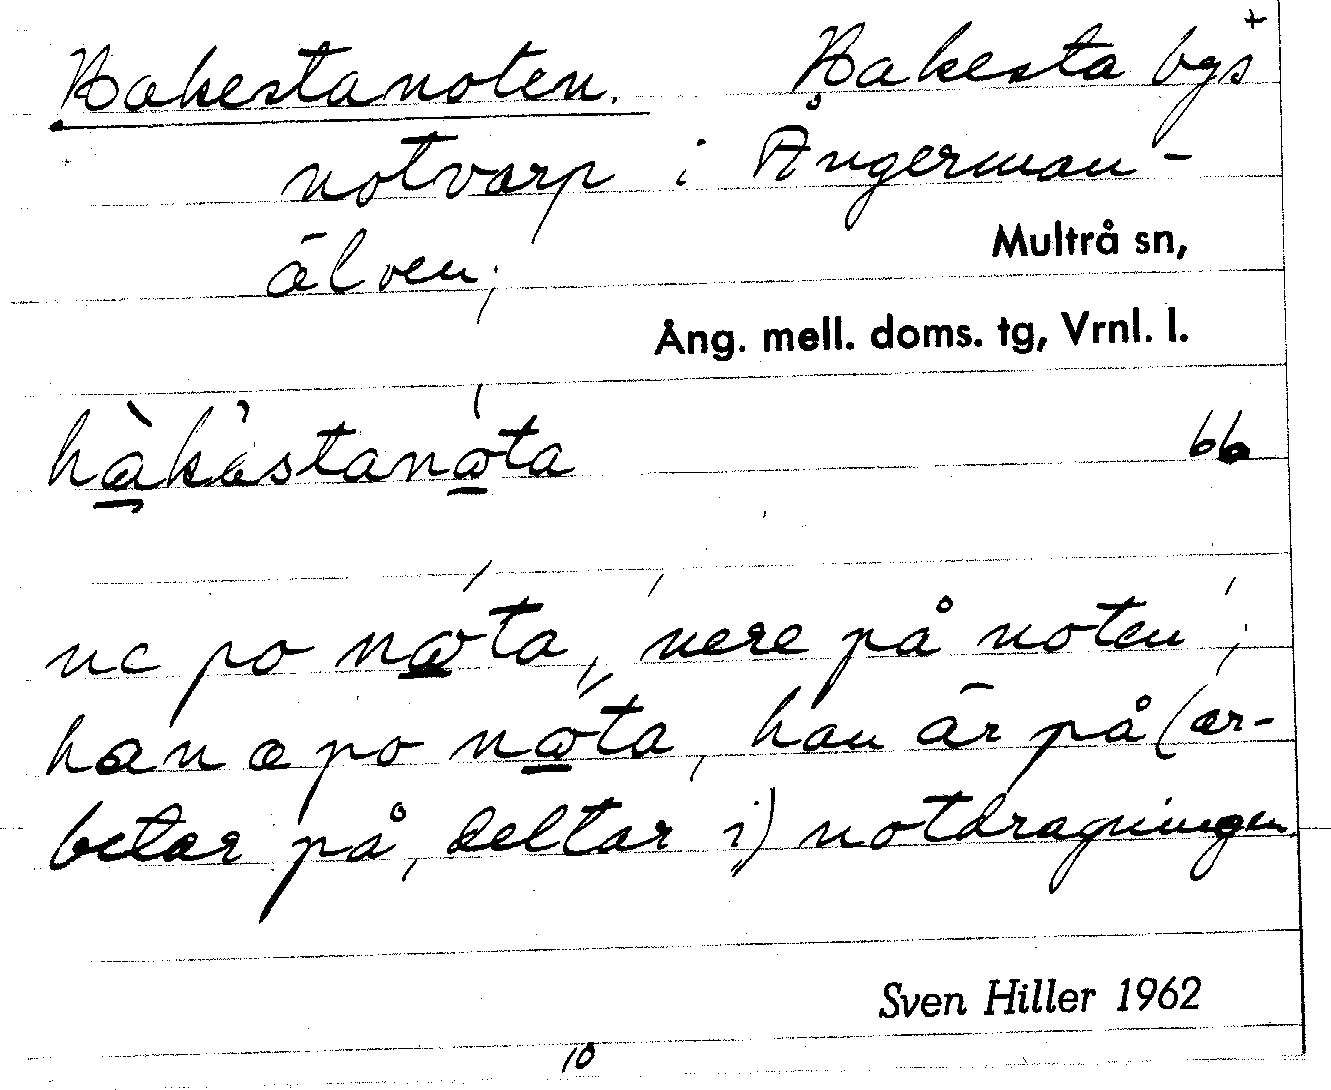 Hakestanoten. Hakesta bys +
notvarp i Ångerman-
älven;
Multrå sn,
Ång. mell. doms. tg, Vrnl. l.
hàkástanóta bb
ne po nǿta, 'nere på noten';
han æ po nǿta, han är på (ar-
betar på, deltar i) notdragningen.
Sven Hiller 1962
10